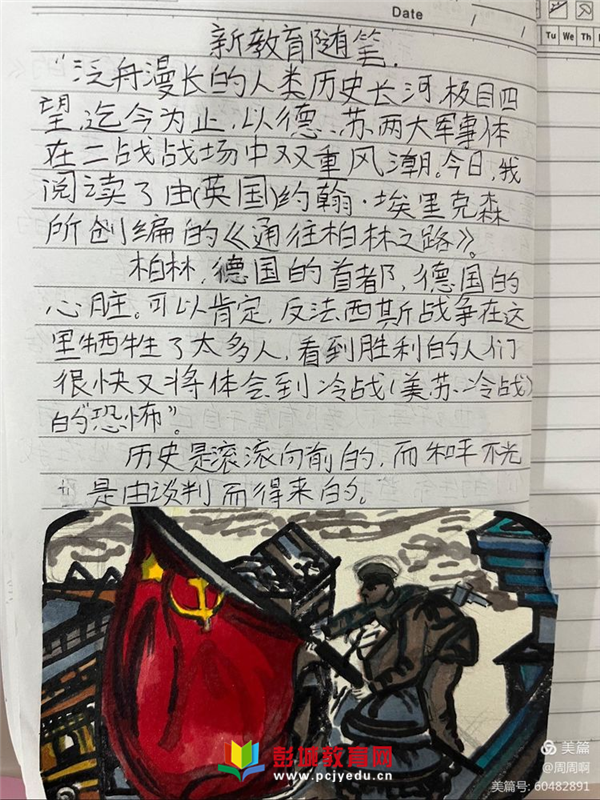 Date / /
Tu We Th
新教育随笔.
“泛舟漫长的人类历史长河,极目四
望,迄今为止,以德、苏两大军事体
在二战战场中双重风潮。今日,我
阅读了由(英国)约翰·埃里克森
所创编的《通往柏林之路》。
柏林,德国的首都,德国的
心脏。可以肯定,反法西斯战争在这
里牺牲了太多人,看到胜利的人们
很快又将体会到冷战(美苏冷战)
的“恐怖”。
历史是滚滚向前的,而和平不光
是由谈判而得来的。
彭城教育网
www.pcjyedu.cn
美篇
@周周啊
美篇号: 60482891